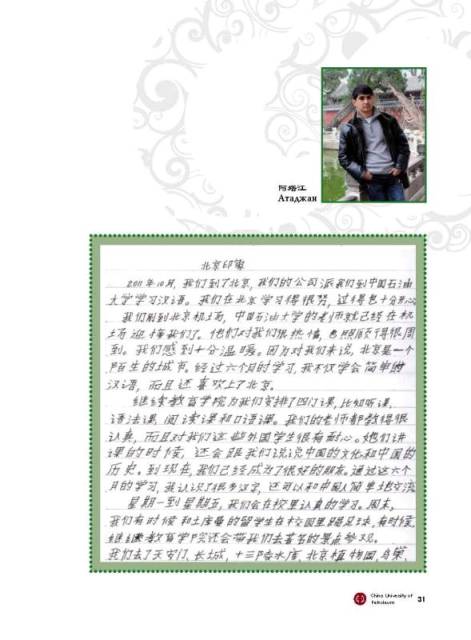 阿塔江
Атаджан
北京印象
2011年10月,我们到了北京,我们的公司派我们到中国石油
大学学习汉语。我们在北京学习得很努,过得也十分开心。
我们刚到北京机场,中国石油大学的老师就已经在机
场迎接我们了。他们对我们很热情,也照顾得很周
到。我们感到十分温暖。因为对我们来说,北京是一个
陌生的城市。经过六个月的学习,我不仅学会简单的
汉语,而且还喜欢上了北京。
继续教育学院为我们安排了四门课,比如听课、
语法课,阅读课和口语课。我们的老师都教得很
认真,而且对我们这些外国学生很有耐心。她们讲
课的时候,还会跟我们说说中国的文化和中国的
历史。到现在,我们已经成为了很好的朋友。通过这六个
月的学习,我认识了很多汉字,还可以和中国人简单地交流
星期一到星期五,我们会在校里认真的学习。周末,
我们有时候和土库曼的留学生在校园里踢足球,有时候,
继续教育学院还会带我们去著名的景点参观。
我们去了天安门,长城,十三陵水库,北京植物园,鸟巢,
China University of
Petroleum
31